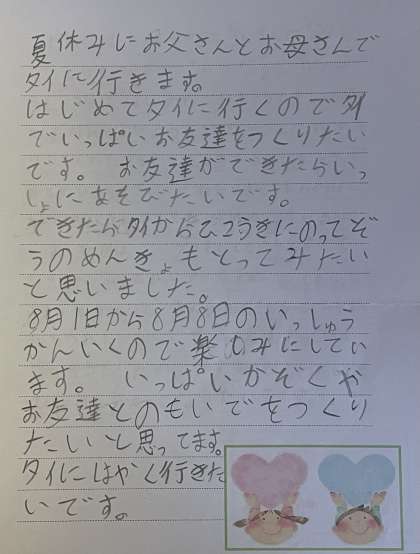 夏休みにお父さんとお母さんで
タイに行きます。
はじめてタイに行くのでタイ
でいっぱいお友達をつくりたい
です。 お友達ができたらいっ
しょにあそびたいです。
できたらタイからひこうきにのってぞ
うのめんきょもとってみたい
と思いました。
8月1日から8月8日のいっしゅう
かんいくので楽しみにしてい
ます。 いっぱいかぞくや
お友達とのもいでをつくり
たいいと思ってます。
タイにはやく行きた
いです。